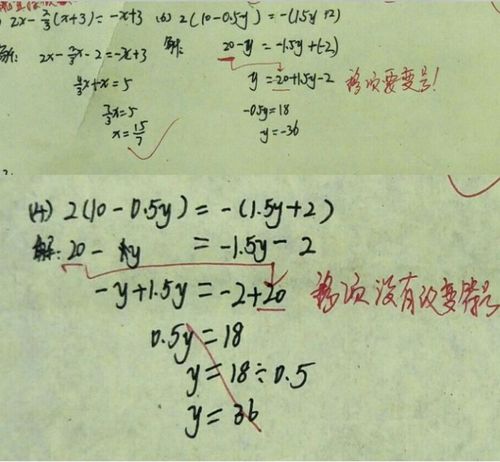 2x-⅔(x+3)=-x+3
(6) 2(10-0.5y)=-(1.5y+2)
解: 2x-⅔x-2=-x+3
解: 20-y=-1.5y+(-2)
4/3x+x=5
y=20+1.5y-2
移项要变号!
7/3x=5
-0.5y=18
x=15/7
y=-36
(4) 2(10-0.5y)=-(1.5y+2)
解: 20-y=-1.5y-2
-y+1.5y=-2+20
移项没有改变符号
0.5y=18
y=18÷0.5
y=36